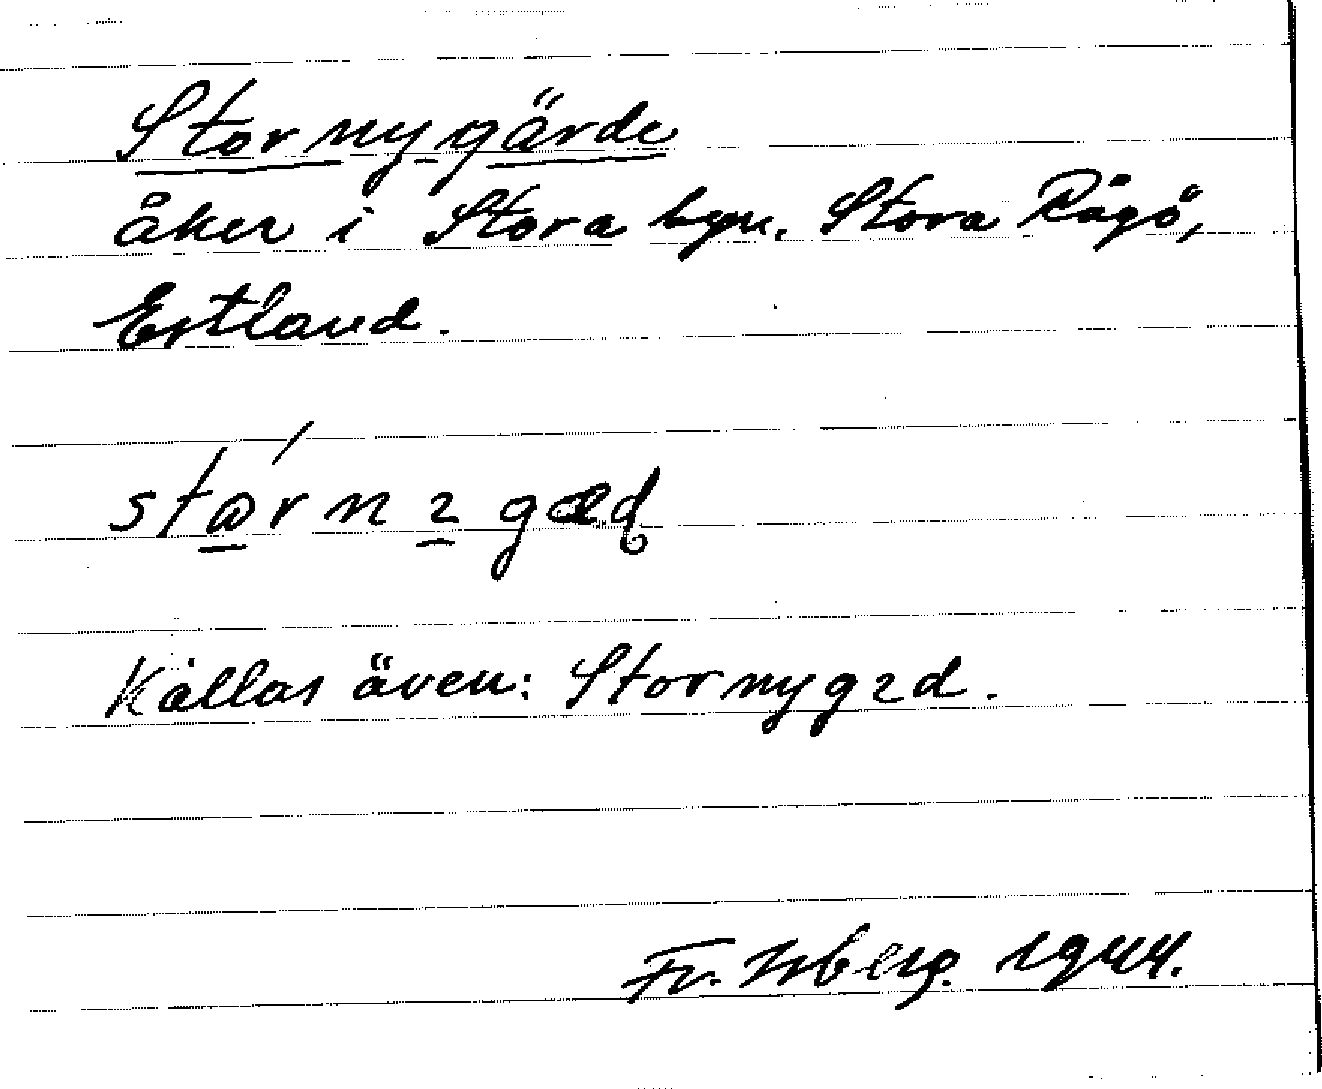 Stornygärde
åker i Stora byn. Stora Rågö,
Estland.
Kallas även: Stornygzd.
Fr. Isberg. 1944.